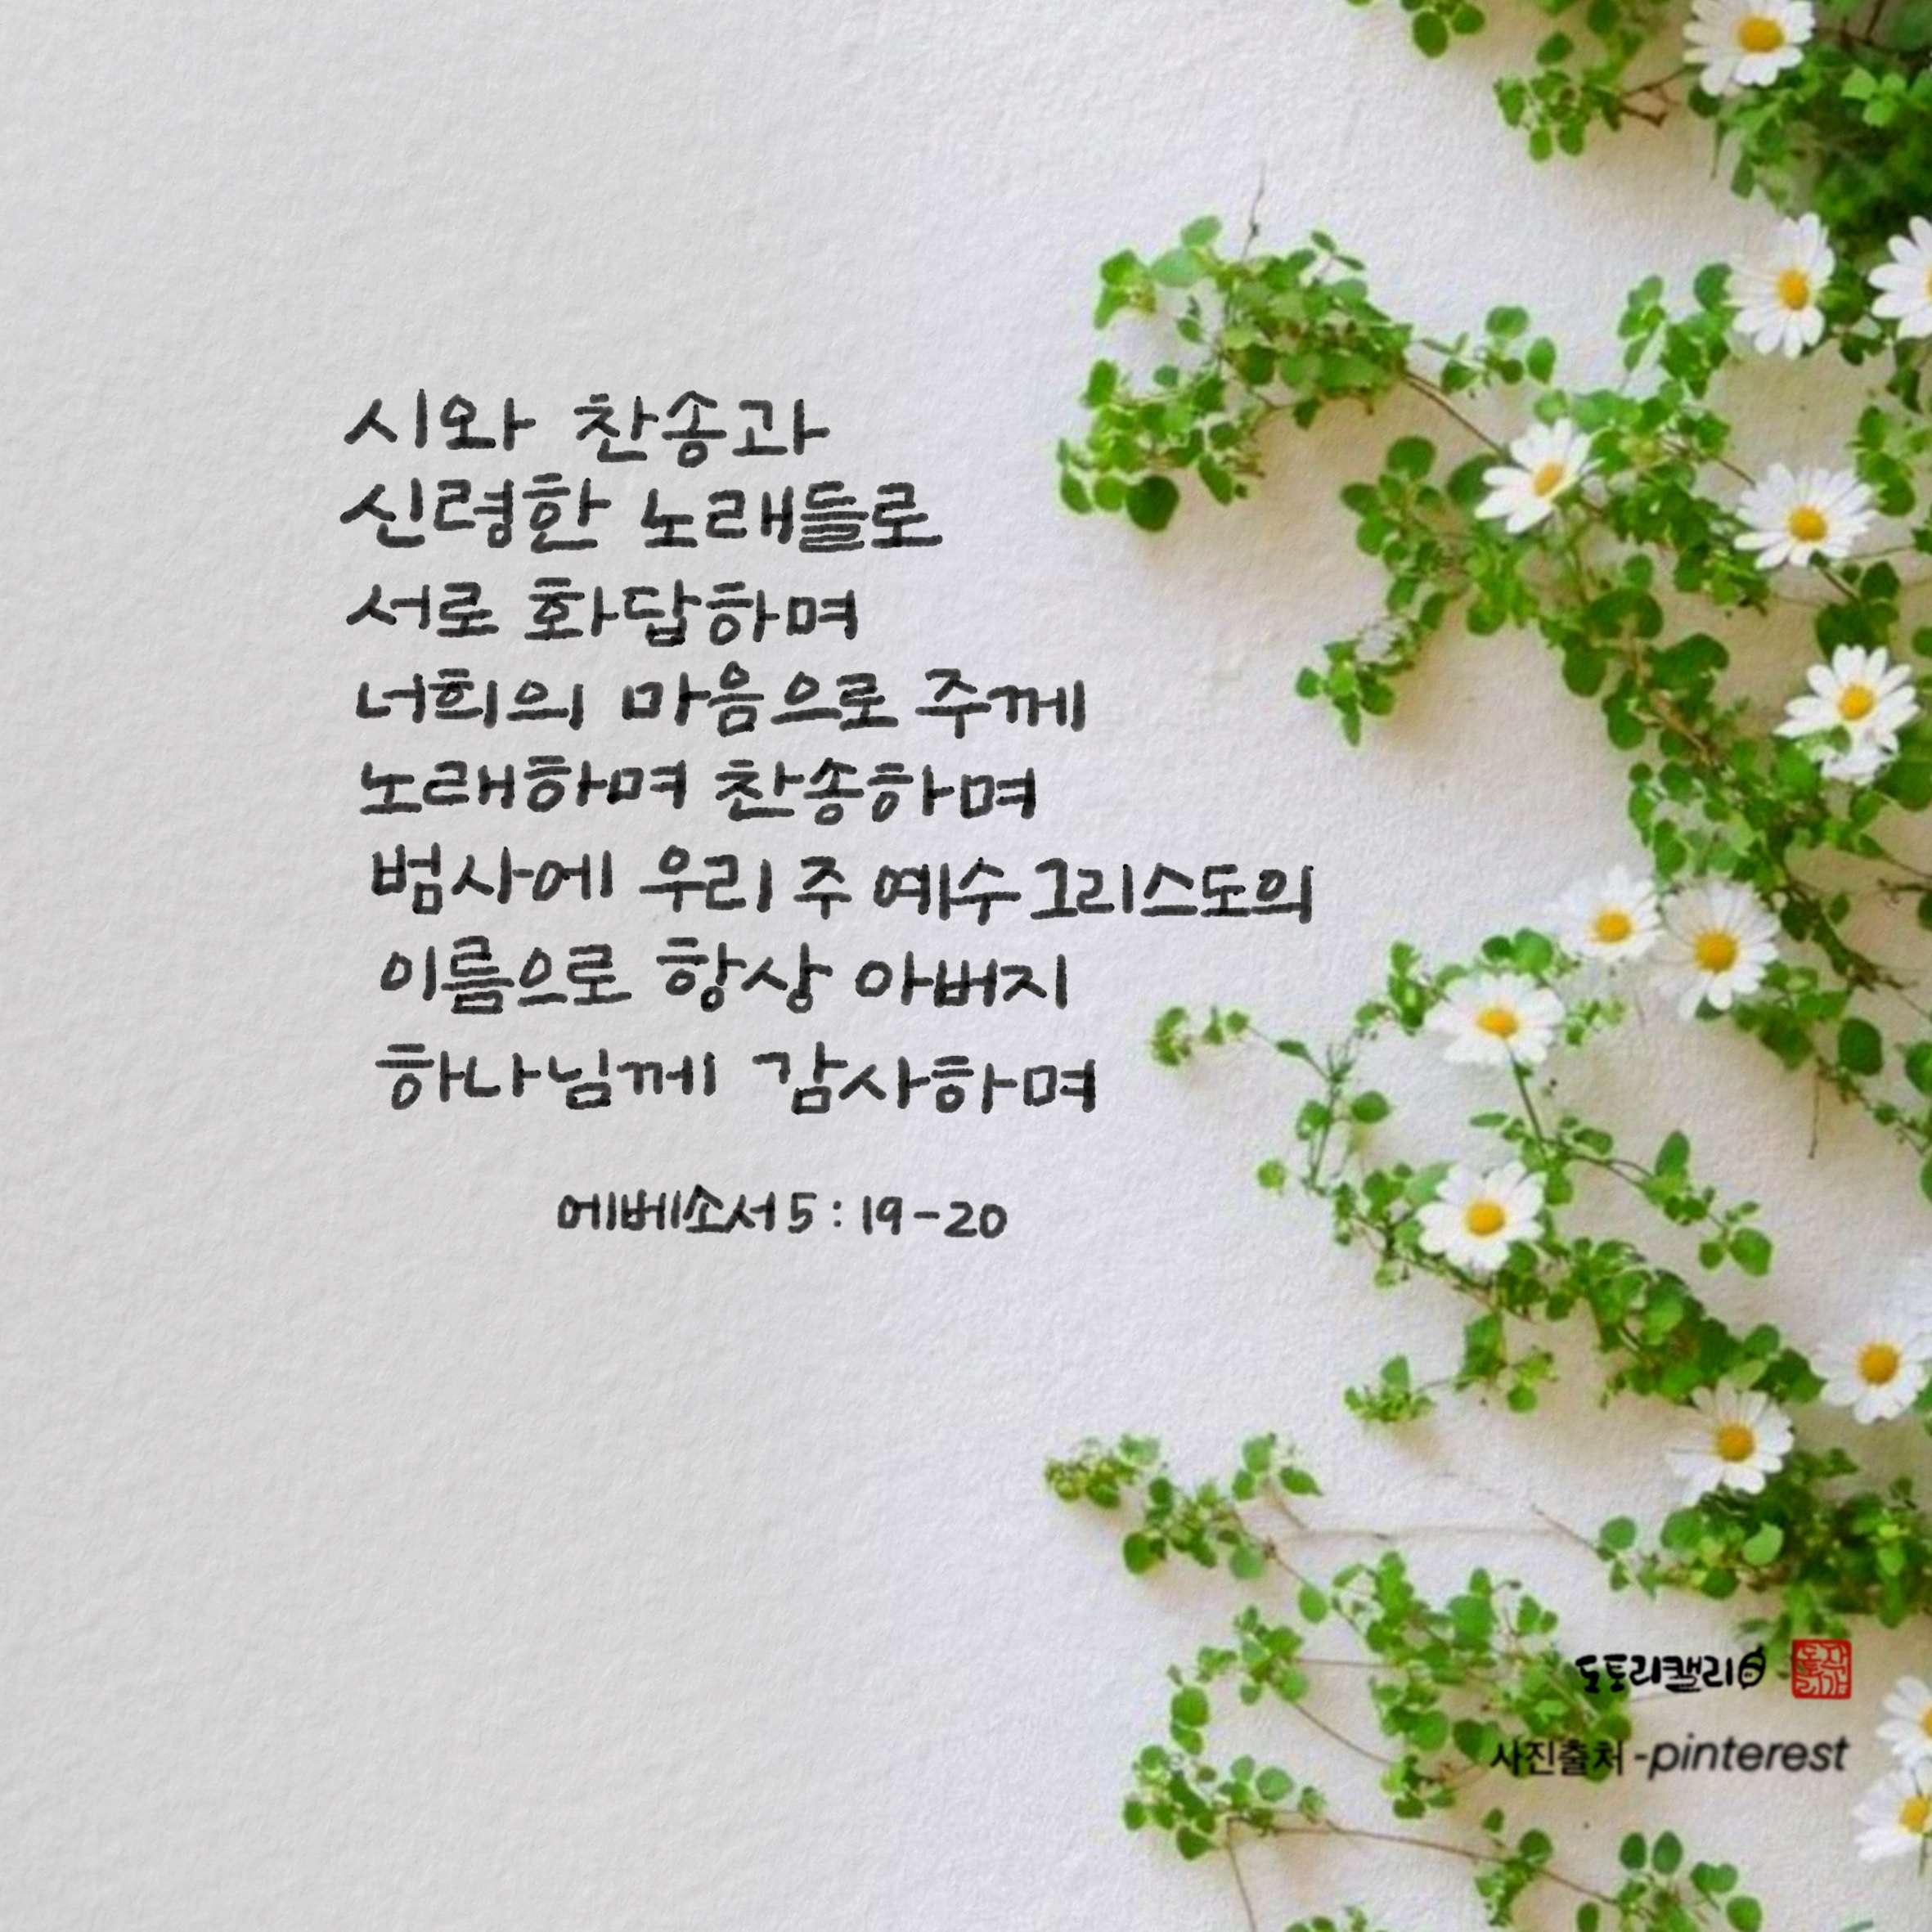 시와 찬송과
신령한 노래들로
서로 화답하며
너희의 마음으로 주께
노래하며 찬송하며
범사에 우리 주 예수 그리스도의
이름으로 항상 아버지
하나님께 감사하며
에베소서 5 : 19 - 20
도토리캘리
사진출처 - pinterest